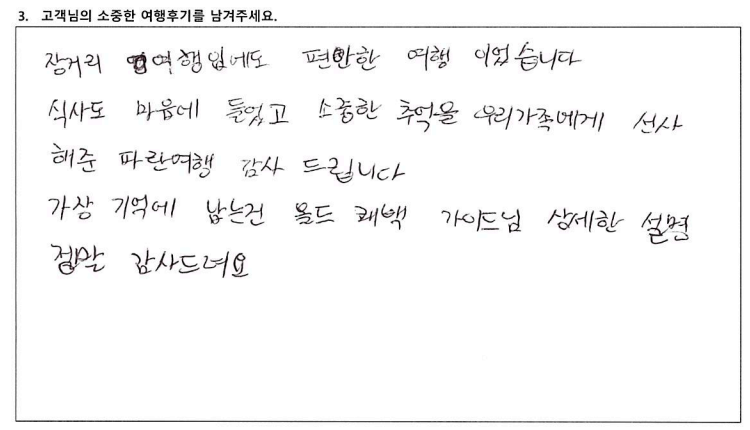 3. 고객님의 소중한 여행후기를 남겨주세요.
장거리 여행임에도 편안한 여행 이었습니다
식사도 마음에 들었고 소중한 추억을 우리가족에게 선사
해준 파란여행 감사 드립니다
가상 기억에 남는건 올드 퀘백 가이드님 상세한 설명
정말 감사드려요